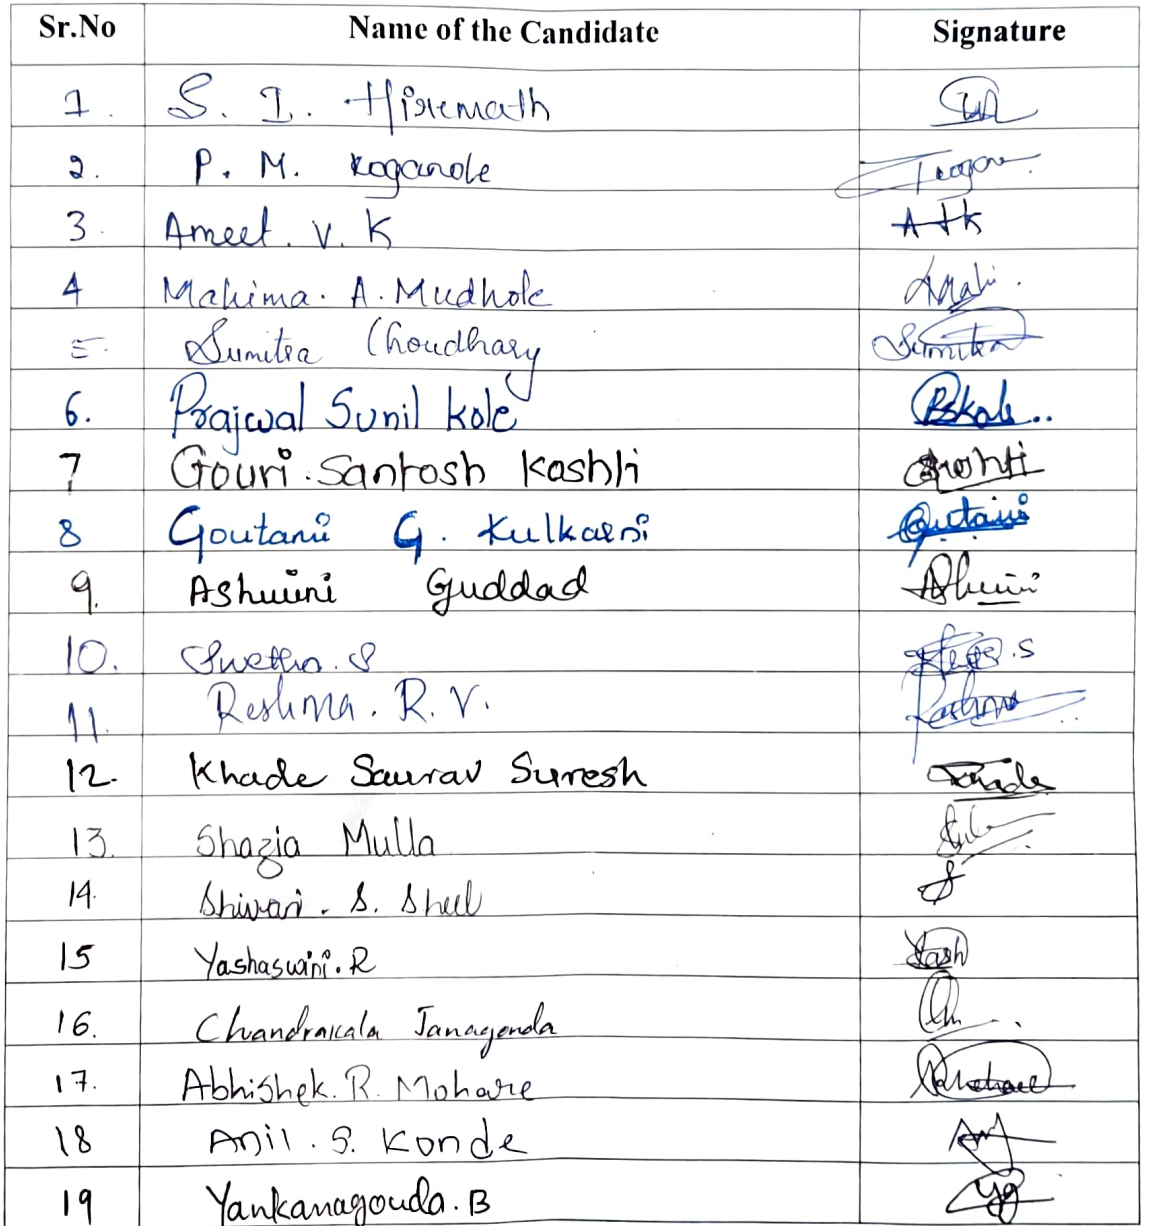 Sr.No Name of the Candidate Signature
1. S. I. Hiremath
2. P. M. Koganole
3. Ameet. V. K A+K
4 Mahima. A. Mudhole
5. Sumitra Choudhary Sumitra
6. Prajwal Sunil kole PSkole..
7 Gouri. Santosh Koshti
8 Goutami G. Kulkarni Goutami
9. Ashwini Guddad Ashwini
10. Swetha. S
11. Reshma. R. V. Reshma
12. Khade Saurav Suresh Khade
13. Shazia Mulla
14. Shivani. S. Sheel S
15 Yashaswini. R Yash
16. Chandrakala Janagonda
17. Abhishek. R. Mohare
18 Anil. S. Konde
19 Yankanagouda. B Yg